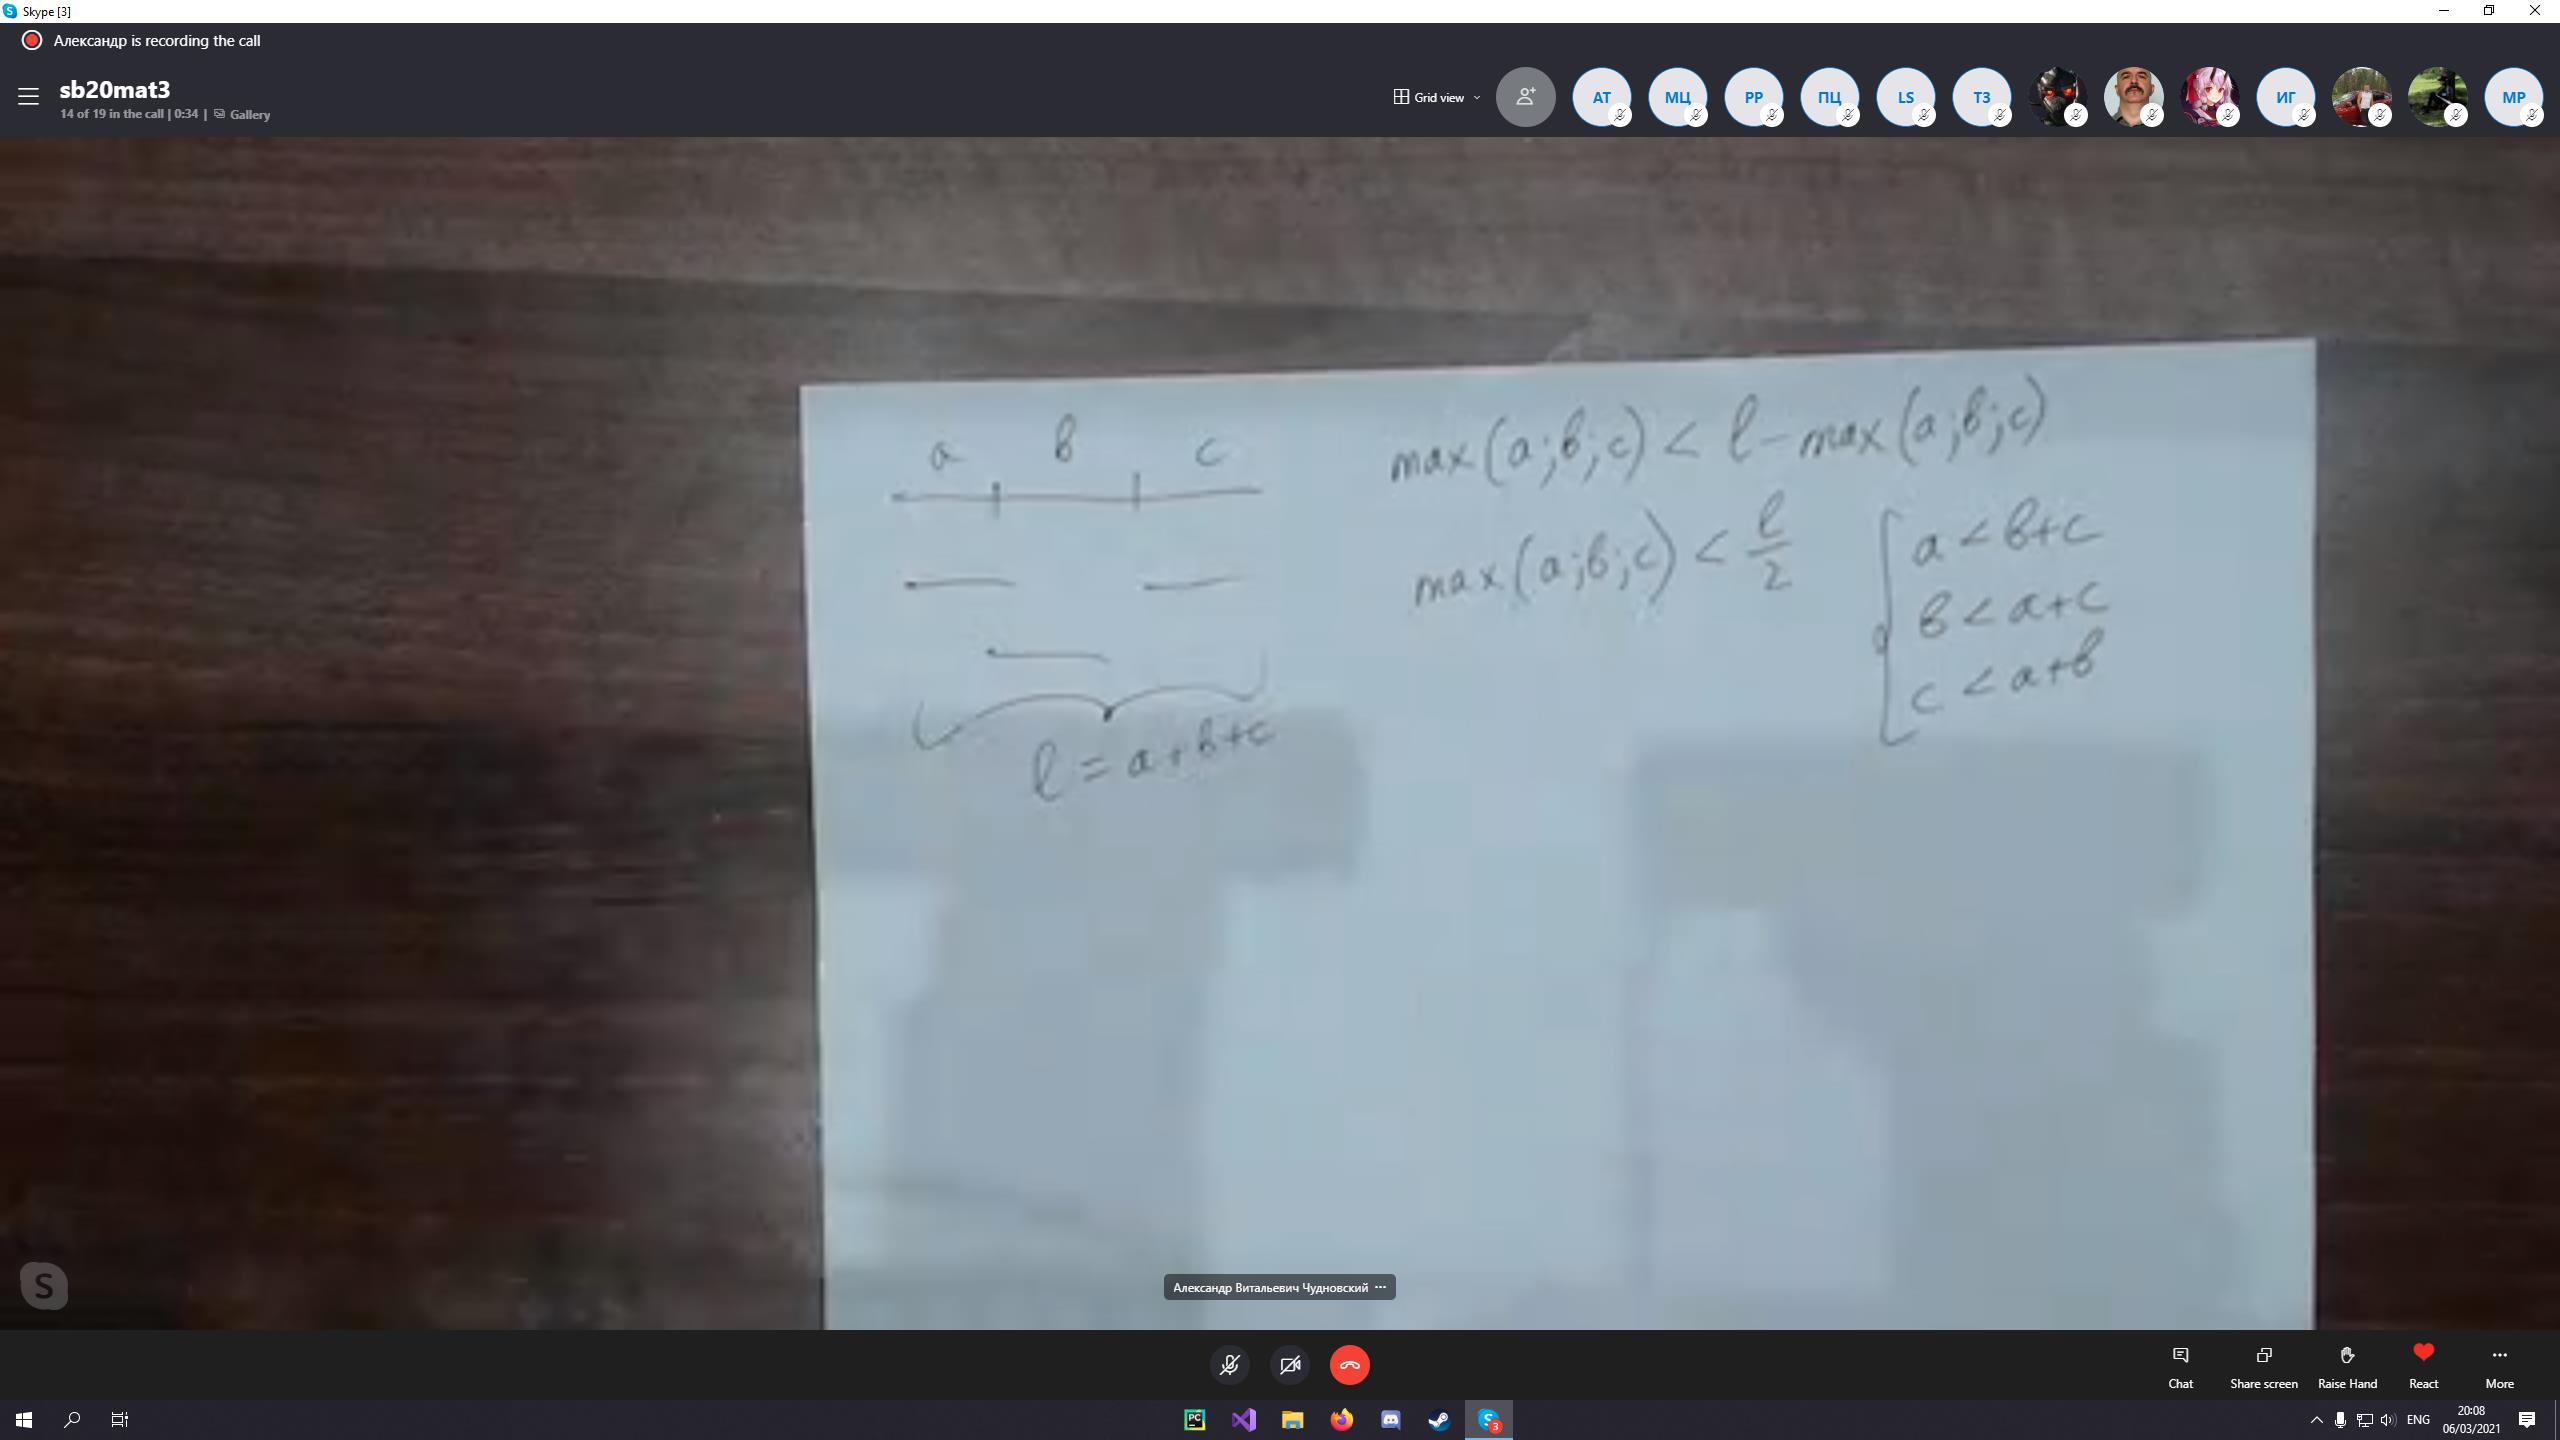 Skype [3]
Александр is recording the call
sb20mat3
14 of 19 in the call | 0:34 | Gallery
Grid view
АТ
МЦ
РР
ПЦ
LS
ТЗ
ИГ
МР
a b c
l = a+b+c
max(a;b;c) < l - max(a;b;c)
max(a;b;c) < l/2
a < b+c
b < a+c
c < a+b
Александр Витальевич Чудновский
Chat
Share screen
Raise Hand
React
More
S
PC
S
3
ENG
20:08
06/03/2021